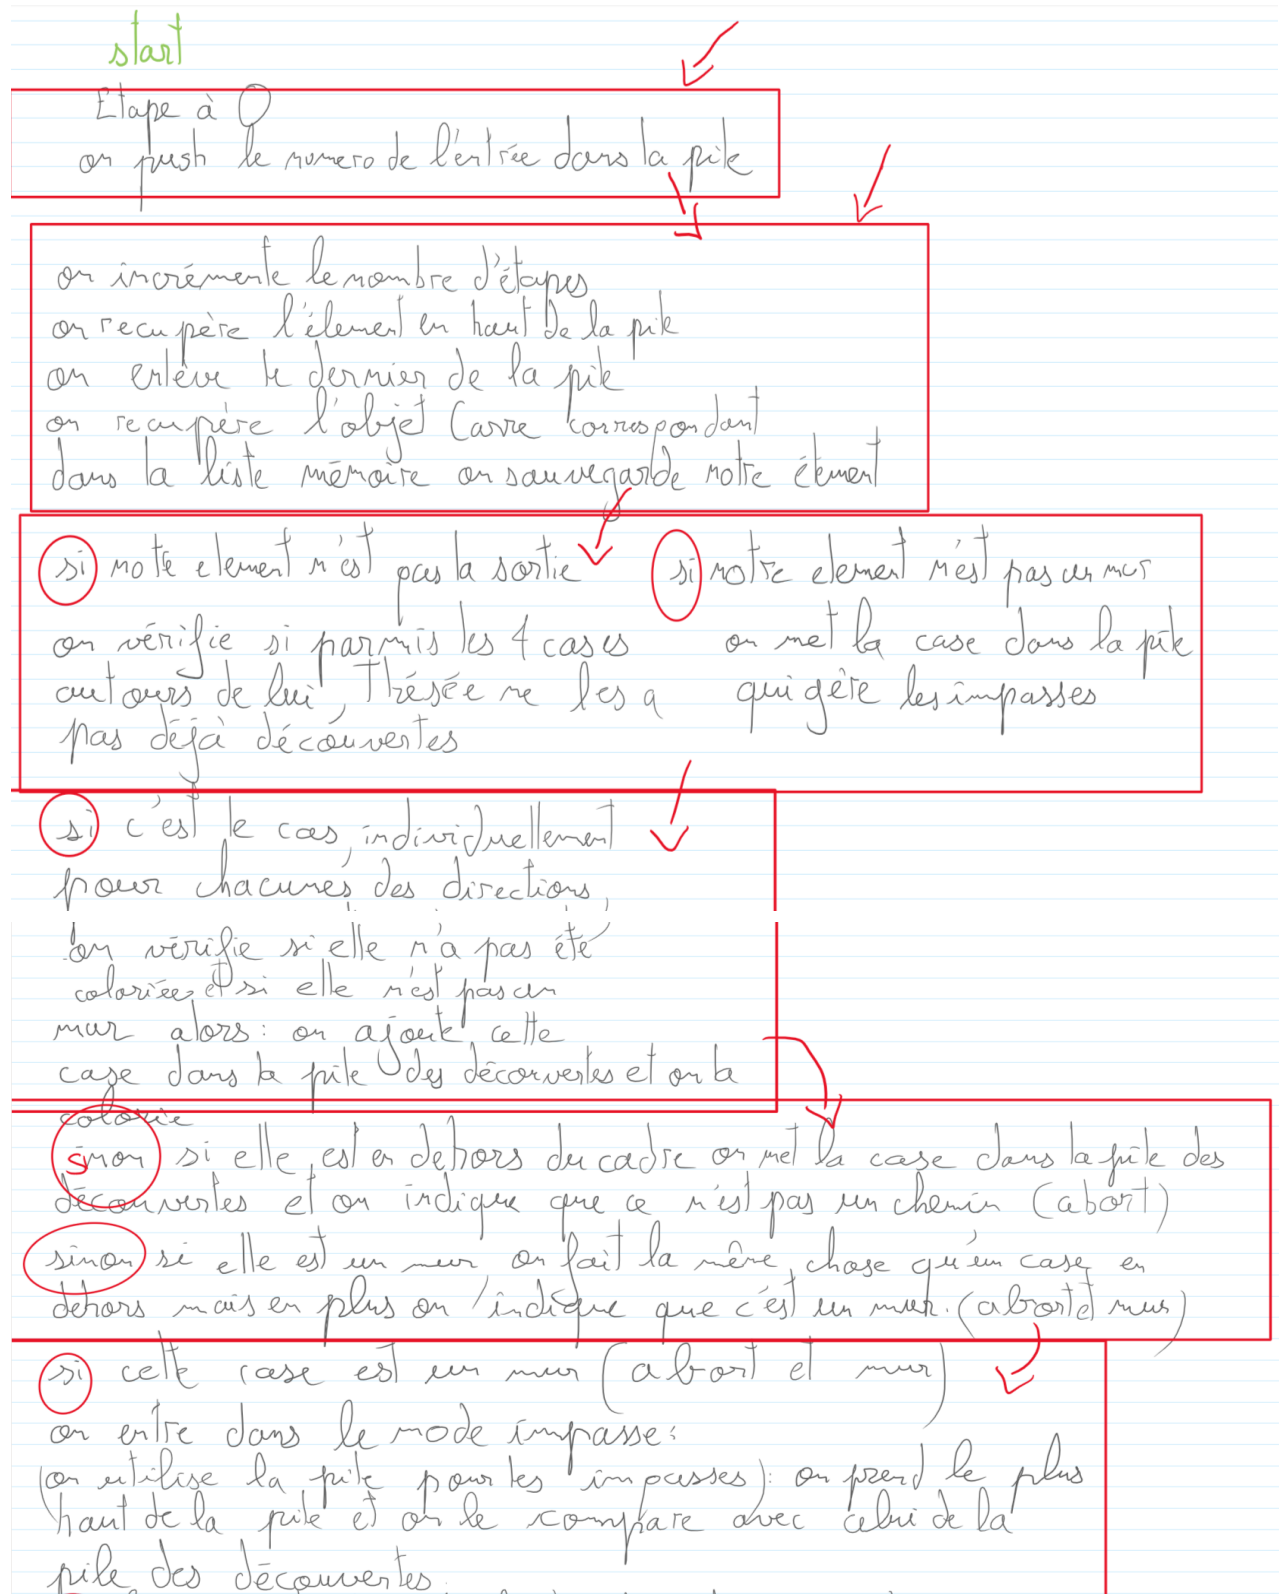 start
Etape à 0
on push le numero de l'entrée dans la pile
on incrémente le nombre d'étapes
on recupère l'élement en haut de la pile
on enlève le dernier de la pile
on recupère l'objet Carre correspondant
dans la liste mémoire on sauvegarde notre élement
si notre element n'est pas la sortie
on vérifie si parmis les 4 cases
autours de lui, Thésée ne les a
pas déjà découvertes
si notre element n'est pas un mur
on met la case dans la pile
qui gère les impasses
si c'est le cas, individuellement
pour chacunes des directions,
on vérifie si elle n'a pas été
coloriée et si elle n'est pas un
mur alors: on ajoute cette
case dans la pile des découvertes et on la
colorie
sinon si elle est en dehors du cadre on met la case dans la pile des
découvertes et on indique que ce n'est pas un chemin (abort)
sinon si elle est un mur, on fait la même chose qu'un case en
dehors mais en plus on indique que c'est un mur. (abort et mur)
si cette case est un mur (abort et mur)
on entre dans le mode impasse:
(on utilise la pile pour les impasses): on prend le plus
haut de la pile et on le compare avec celui de la
pile des découvertes.